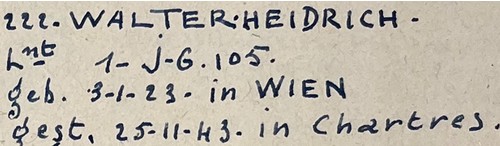 222. WALTER·HEIDRICH.
Lnt 1- J-G. 105.
geb. 3-1-23. in WIEN
gest. 25-11-43. in Chartres.